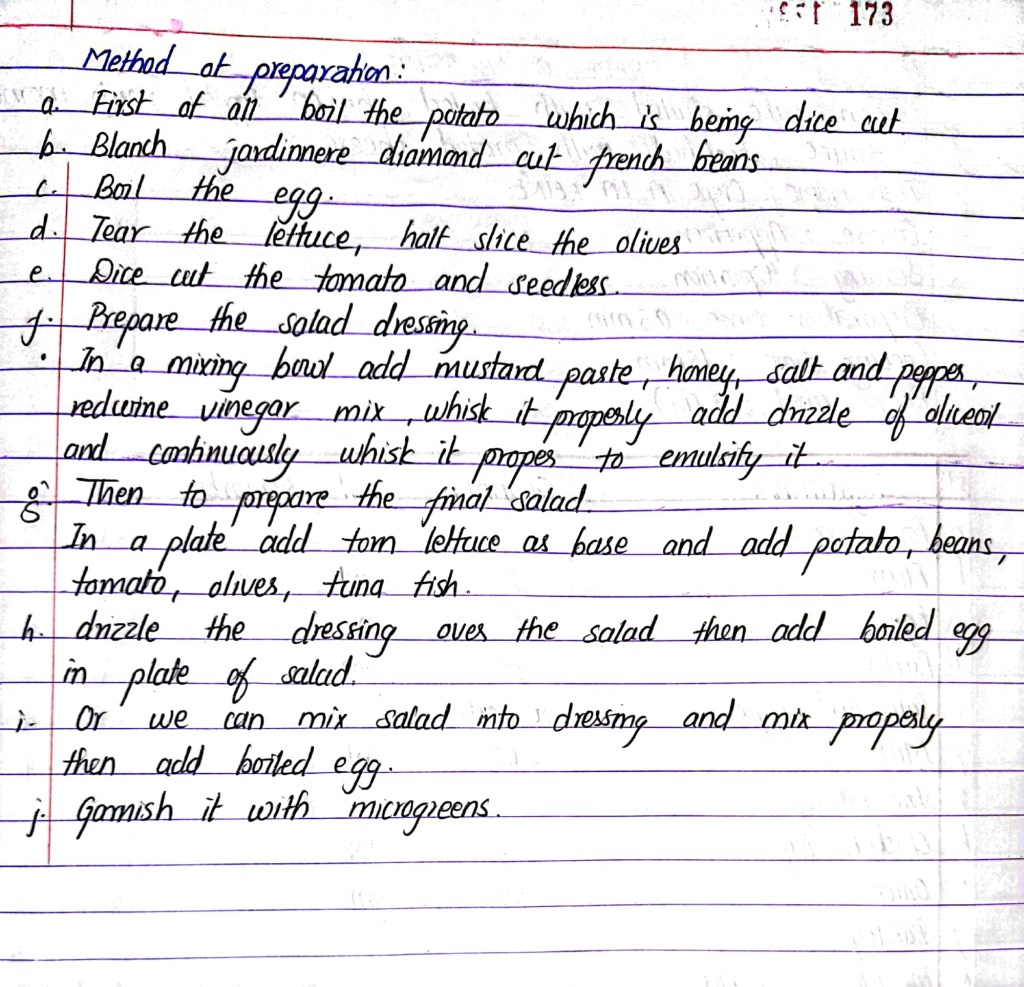 173
Method of preparation:
a. First of all boil the potato which is being dice cut.
b. Blanch jardinnere diamond cut french beans
c. Boil the egg.
d. Tear the lettuce, half slice the olives
e. Dice cut the tomato and seedless.
f. Prepare the salad dressing.
• In a mixing bowl add mustard paste, honey, salt and pepper,
redwine vinegar mix, whisk it properly add drizzle of oliveoil
and continuously whisk it proper to emulsify it.
g. Then to prepare the final salad.
In a plate add torn lettuce as base and add potato, beans,
tomato, olives, tuna fish.
h. drizzle the dressing over the salad then add boiled egg
in plate of salad.
i. Or we can mix salad into dressing and mix properly
then add boiled egg.
j. Garnish it with microgreens.